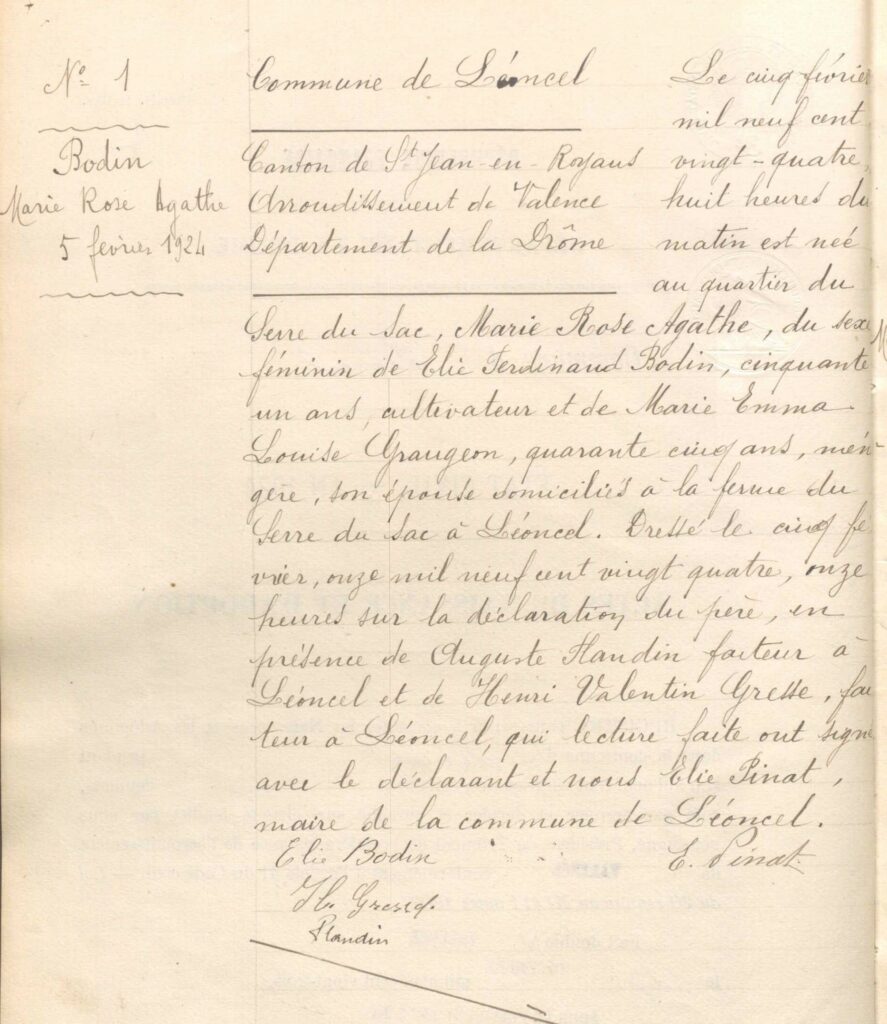 No 1
Bodin
Marie Rose Agathe
5 février 1924
Commune de Léoncel
Canton de St Jean-en-Royans
Arrondissement de Valence
Département de la Drôme
Le cinq février
mil neuf cent
vingt-quatre,
huit heures du
matin est neé
au quartier du
Serre du Sac, Marie Rose Agathe, du sexe
féminin de Elie Ferdinand Bodin, cinquante
un ans, cultivateur et de Marie Emma
Louise Graugeon, quarante cinq ans, mén-
gère, son épouse domiciliés à la ferme du
Serre du Sac à Léoncel. Dressé le cinq fé
vrier, onze mil neuf cent vingt quatre, onze
heures sur la déclaration du père, en
présence de Auguste Flandin facteur à
Léoncel et de Henri Valentin Gresse, fac
teur à Léoncel, qui lecture faite ont signé
avec le déclarant et nous Élie Pinat,
maire de la commune de Léoncel.
Elie Bodin
E. Pinat